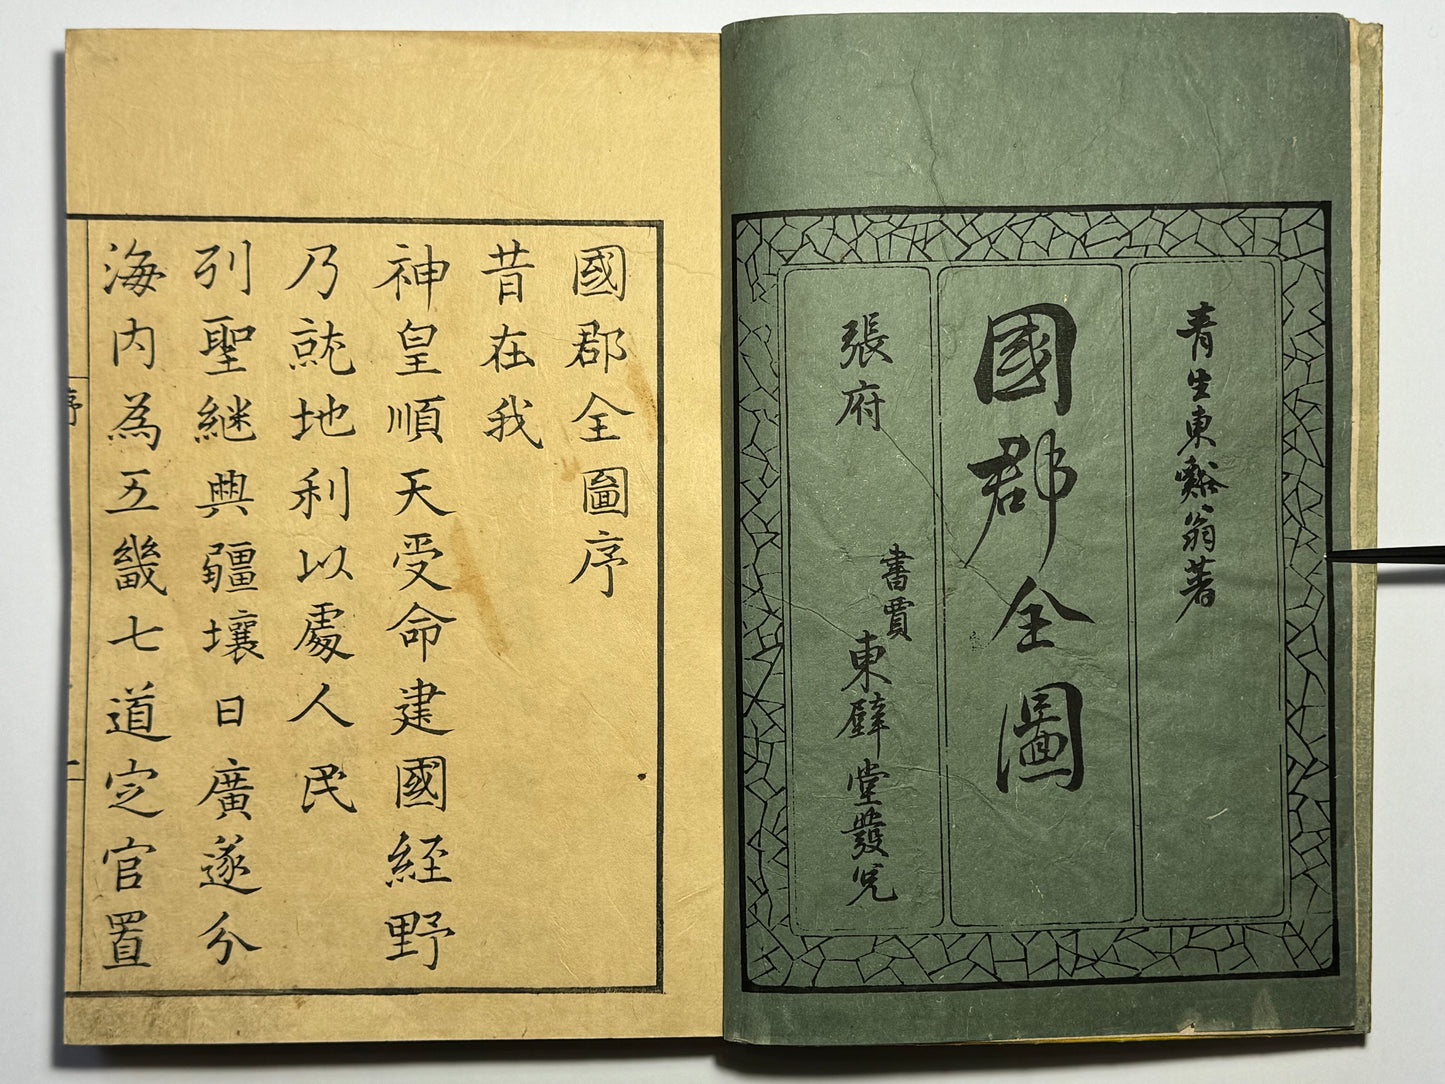 青生東谿翁著
國郡全圖
張府
書賈
東壁堂發兌
國郡全啚序
昔在我
神皇順天受命建國経野
乃就地利以處人民
列聖継興疆壤日廣遂分
海内為五畿七道定官置
序
一